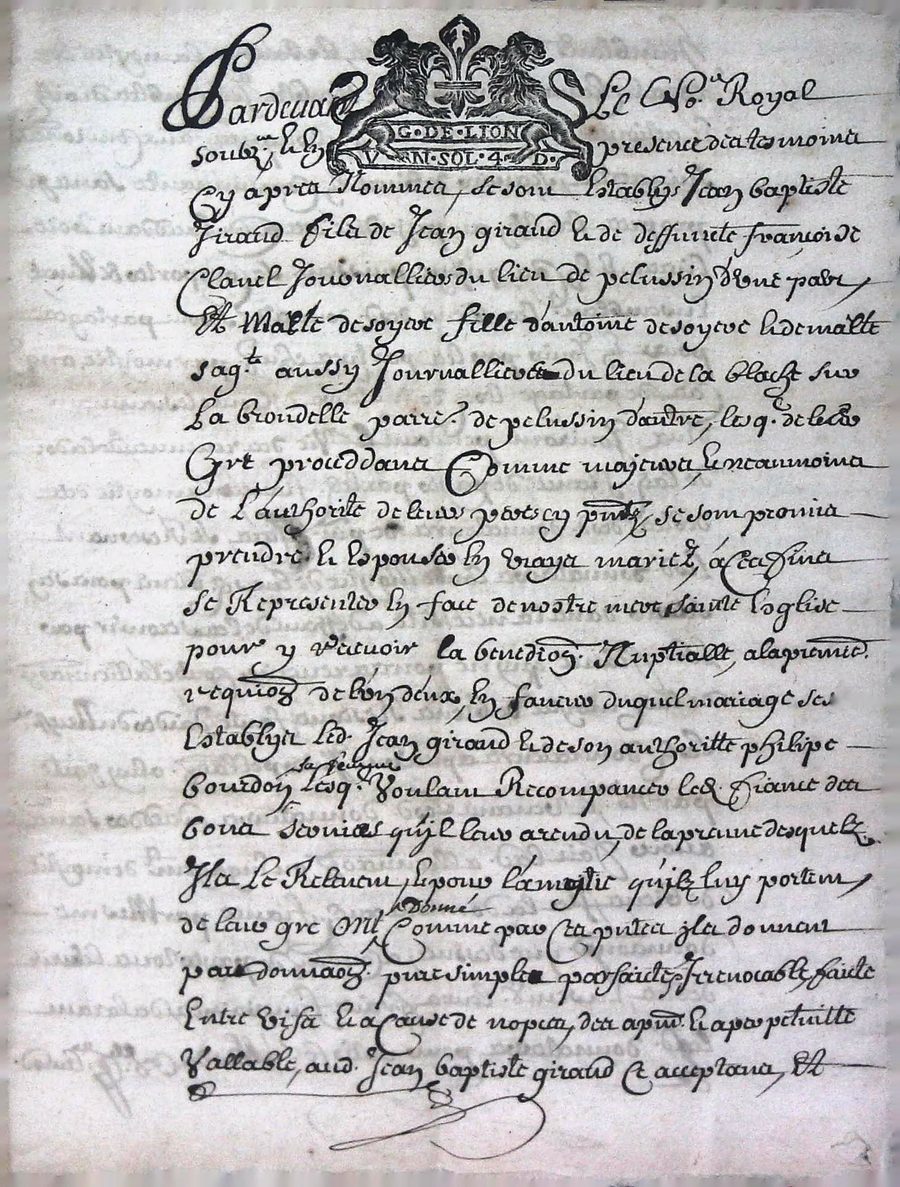 Pardevant Le No.re Royal
G·DE·LION
V N·SOL·4·D·
soubz.né & En presence des tesmoins
Cy apres Nommes, se sont Establys Jean baptiste
Giraud fils de Jean giraud & de deffuncte francoise
Clauel Journalliers du lieu de pelussin d'une part,
Et Malte desoyere fille d'antoine desoyere & de malte
sag.t aussy Journalliere du lieu de la blache sur
La brondelle parre. de pelussin d'autre, lesq. de leur
Gré proceddans Comme majeurs, & neanmoins
de L'authorité de leurs peres cy pnts, se sont promis
prendre & Espouser En vrays mariez, a Ces fins
se Representer En face de nostre mere sainte Esglise
pour y recevoir la benedion. Nuptialle, a la premre.
requion de l'un d'eux, En faveur duquel mariage ses
Establys led. Jean giraud & de son authorité philipe
bourdon sa femme Lesq. Voulant Recompancer led. fiancé des
bons services qu'il leur a rendu, de la preuve desquelz
Ils Le Relevent, & pour l'amytié qu'ilz luy portent,
de leur gré Ont Donné Comme par Ces pntes ils donnent
par donnaon. pure simple parfaite & Irrevocable, faite
Entre vifs & a Cause de nopces, des apnt. & a perpetuitte
Vallable, aud. Jean baptiste giraud Ce acceptant, Et